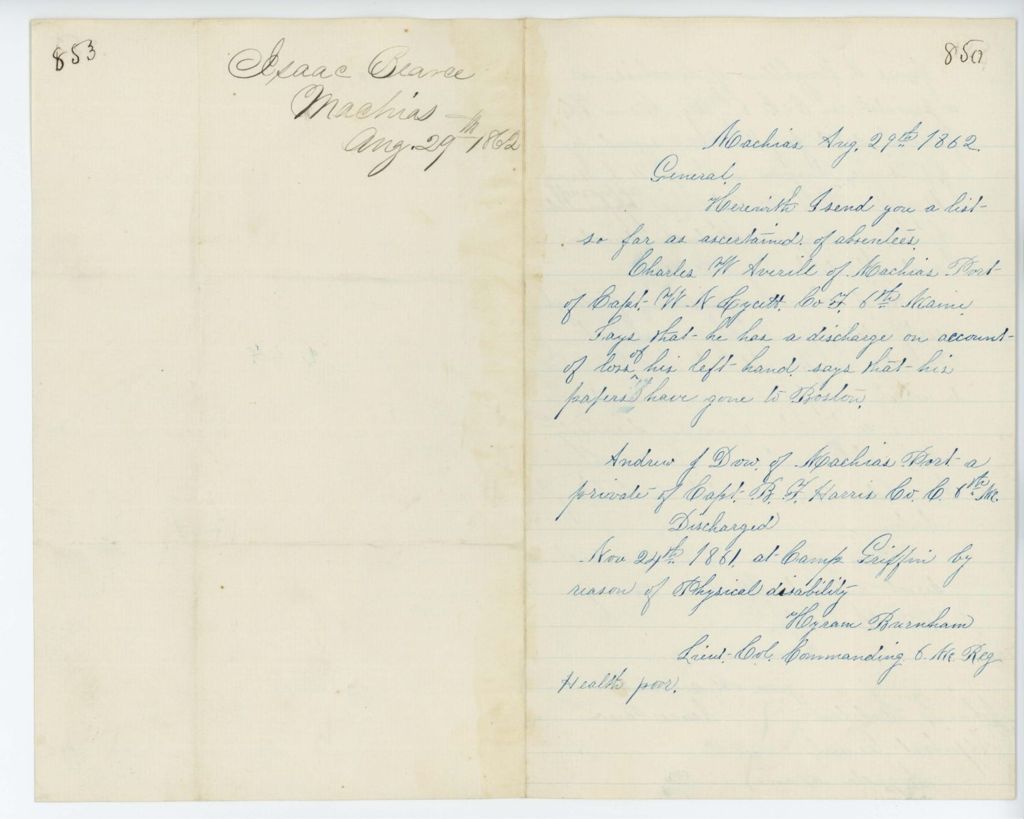 853
Isaac Bearce
Machias
Aug. 29th 1862
850
Machias Aug. 29th 1862.
General,
Herewith I send you a list
so far as ascertained of absentees.
Charles W Averill of Machias Port
of Capt. W. N Co F. 6th Maine
Says that he has a discharge on account
of loss of his left hand. says that his
papers have gone to Boston.
Andrew J Dow. of Machias Port a
private of Capt. B. F. Harris Co. C. 6th Me.
Discharged
Nov 24th 1861. at Camp Griffin by
reason of Physical disability
Hyram Burnham
Lieut. Col. Commanding 6 Me Reg
Health poor.